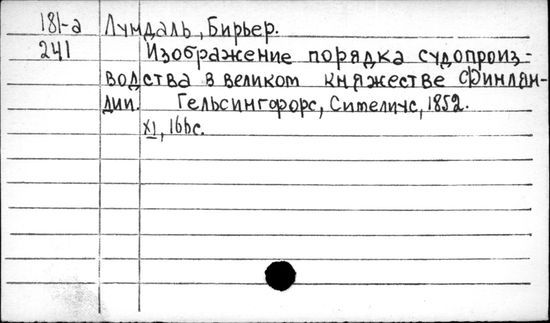 181-а Лумдаль, Бирьер.
241 Изображение порядка судопроиз-
водства в великом княжестве Финлян-
дии. Гельсингфорс, Симелиус, 1852.
XI, 166с.